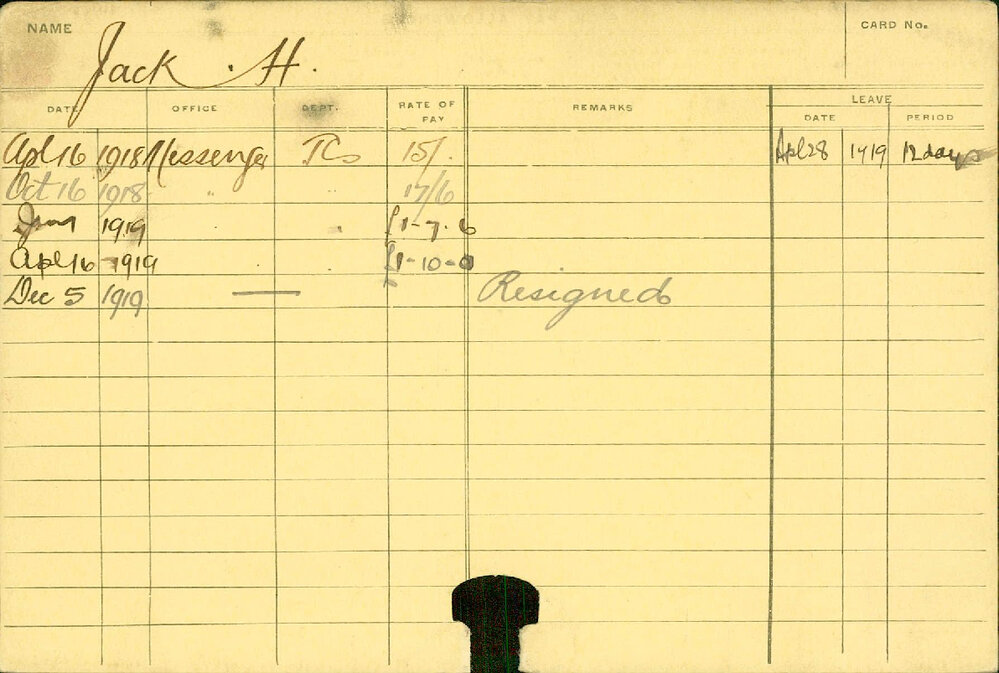 NAME
CARD No.
Jack . H.
DATE OFFICE DEPT. RATE OF PAY REMARKS LEAVE
DATE PERIOD
Apl 16 1918 Messenger TCs 15/. Apl 28 1919 12 days
Oct 16 1918 " 17/6
1919 " £1-7-6
Apl 16 1919 . . £1-10-0
Dec 5 1919 — Resigned